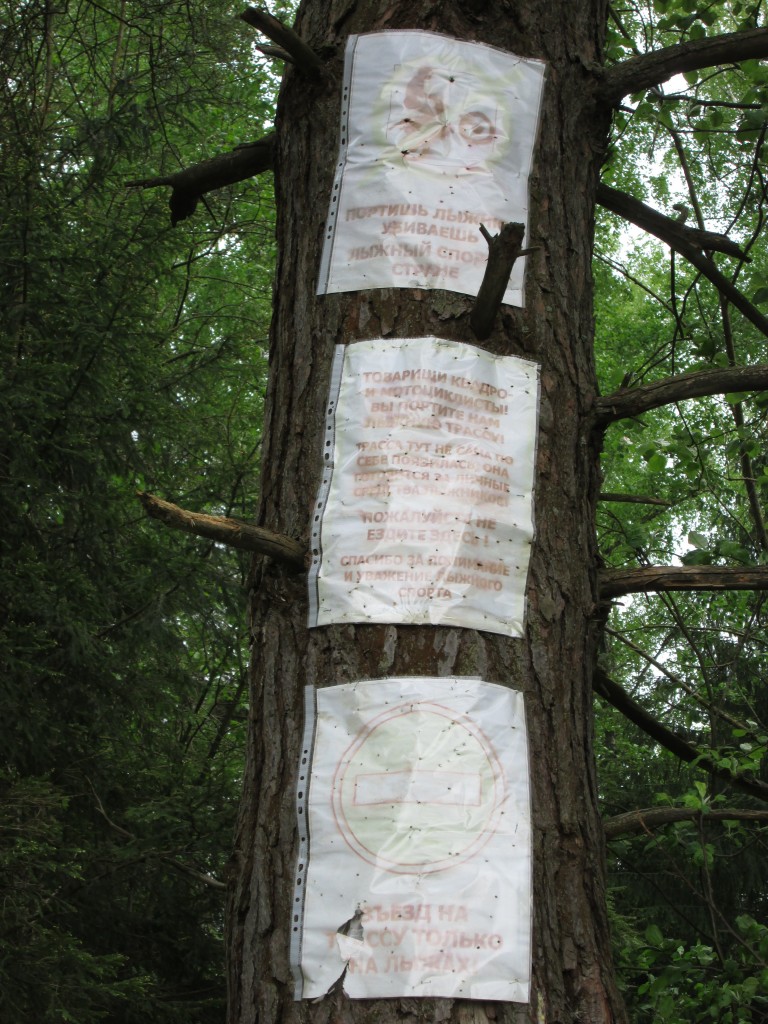 ПОРТИШЬ ЛЫЖНЮ
УБИВАЕШЬ
ЛЫЖНЫЙ СПОРТ
СТРАНЕ
ТОВАРИЩИ КВАДРО
И МОТОЦИКЛИСТЫ!
ВЫ ПОРТИТЕ НАМ
ЛЫЖНУЮ ТРАССУ!
ТРАССА ТУТ НЕ САМА ПО
СЕБЕ ПОЯВИЛАСЬ, ОНА
ГОТОВИТСЯ ЗА ЛИЧНЫЕ
СРЕДСТВА ЛЫЖНИКОВ!
ПОЖАЛУЙСТА НЕ
ЕЗДИТЕ ЗДЕСЬ!
СПАСИБО ЗА ПОНИМАНИЕ
И УВАЖЕНИЕ ЛЫЖНОГО
СПОРТА
ВЪЕЗД НА
ТРАССУ ТОЛЬКО
НА ЛЫЖАХ!